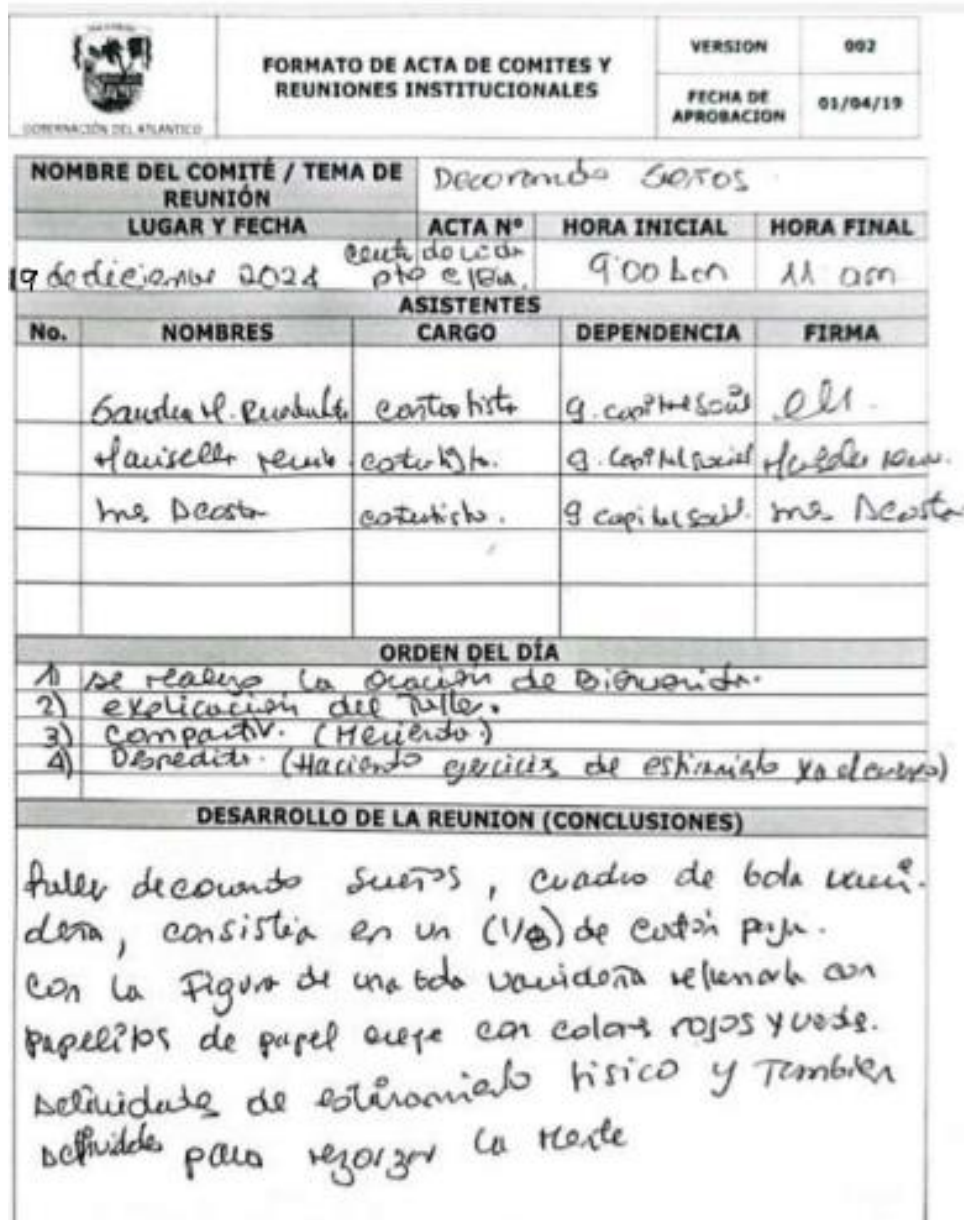 GOBERNACIÓN DEL ATLANTICO
FORMATO DE ACTA DE COMITES Y
REUNIONES INSTITUCIONALES
VERSION 002
FECHA DE
APROBACION 01/04/19
NOMBRE DEL COMITÉ / TEMA DE
REUNIÓN
Decorando
LUGAR Y FECHA ACTA Nº HORA INICIAL HORA FINAL
19 de diciembre 2021 de vida pto 9:00 11 am
ASISTENTES
No. NOMBRES CARGO DEPENDENCIA FIRMA
Sandra M. contratista g. capital social
g. capital social
Acosta g capital social. Acosta
ORDEN DEL DÍA
1) se realizo la oración de Bienvenida.
2) explicación del Taller.
3) Compartir. (Merienda.)
4) Despedida. (Haciendo ejercicios de estiramiento el cuerpo)
DESARROLLO DE LA REUNION (CONCLUSIONES)
Taller decorando sueños, cuadro de bola navi-
deña, consistia en un (1/8) de cartón paja.
con la Figura de una bola navideña rellenarla con
papelitos de papel crepe con colores rojos y verde.
Actividades de estiramiento fisico y Tambien
Actividades para la Mente